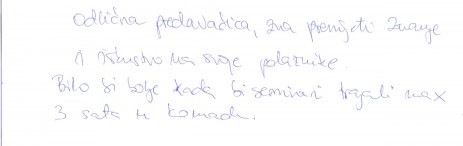 Odlična predavačica, zna prenijeti znanje
i iskustvo na svoje polaznike.
Bilo bi bolje kada bi seminari trajali max
3 sata u komadu.